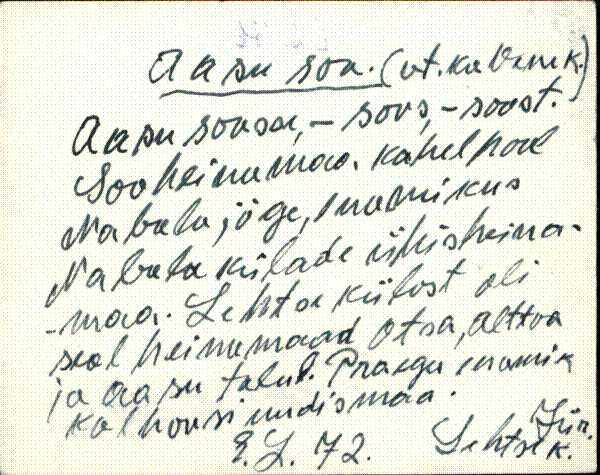 Aasu soo. (vt. ka Vanik.)
Aasu soosse, - soos, - soost.
Sooheinamaa. kahel pool
Nabala jõge, enamikus
Nabala külade ühisheina-
-maa. Lehtse külast oli
seal heinamaad Otsa, alttoa
ja Aasu talul. Praegu enamik
kolhoosi uudismaa.
E. L. 72. Lehtse k.
Jür.